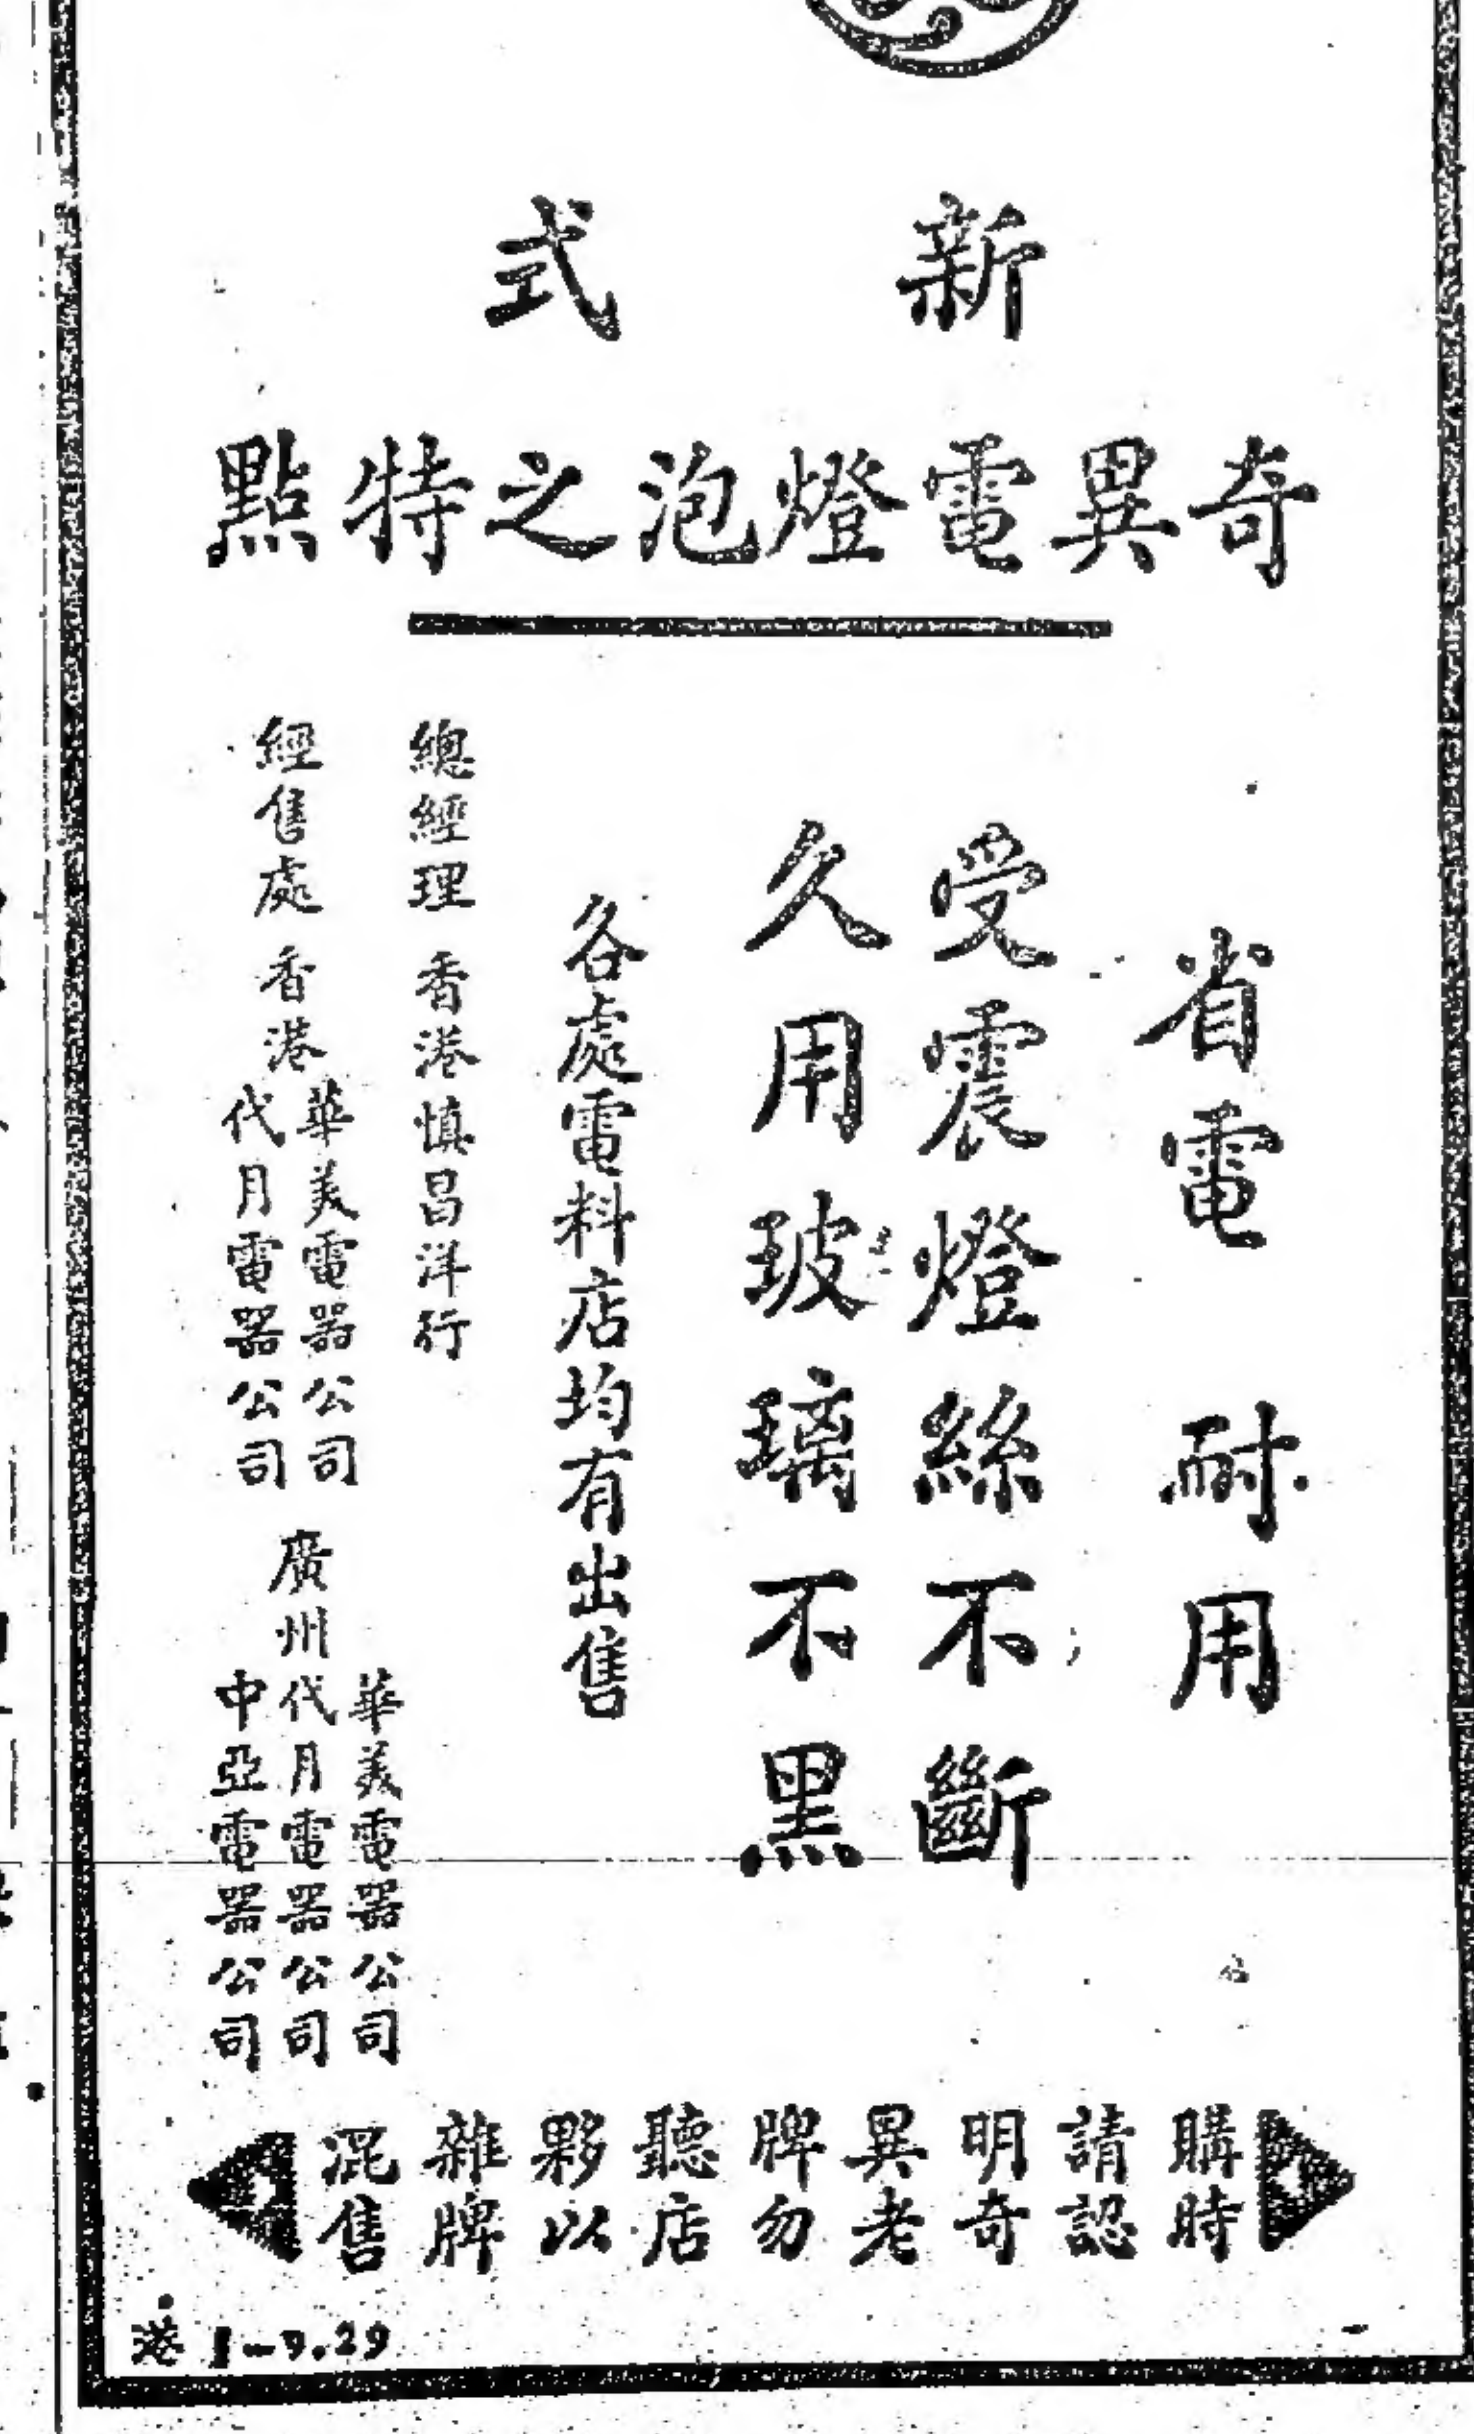 新式
奇異電燈泡之特點
省電 耐用
受震燈絲不斷
久用玻璃不黑
各處電料店均有出售
總經理 香港慎昌洋行
經售處 香港
華美電器公司
代月電器公司
廣州
華美電器公司
代月電器公司
中亞電器公司
購時
請認
明奇
異老
牌勿
聽店
夥以
雜牌
混售
港 1-9.29